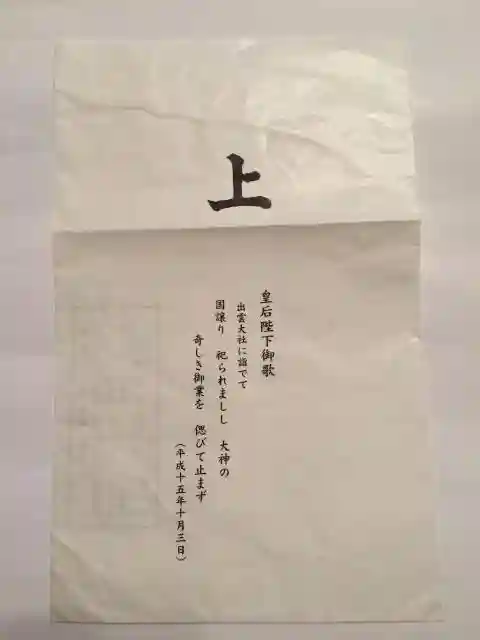 上
皇后陛下御歌
出雲大社に詣でて
国譲り 祀られましし 大神の
奇しき御業を 偲びて止まず
(平成十五年十月三日)